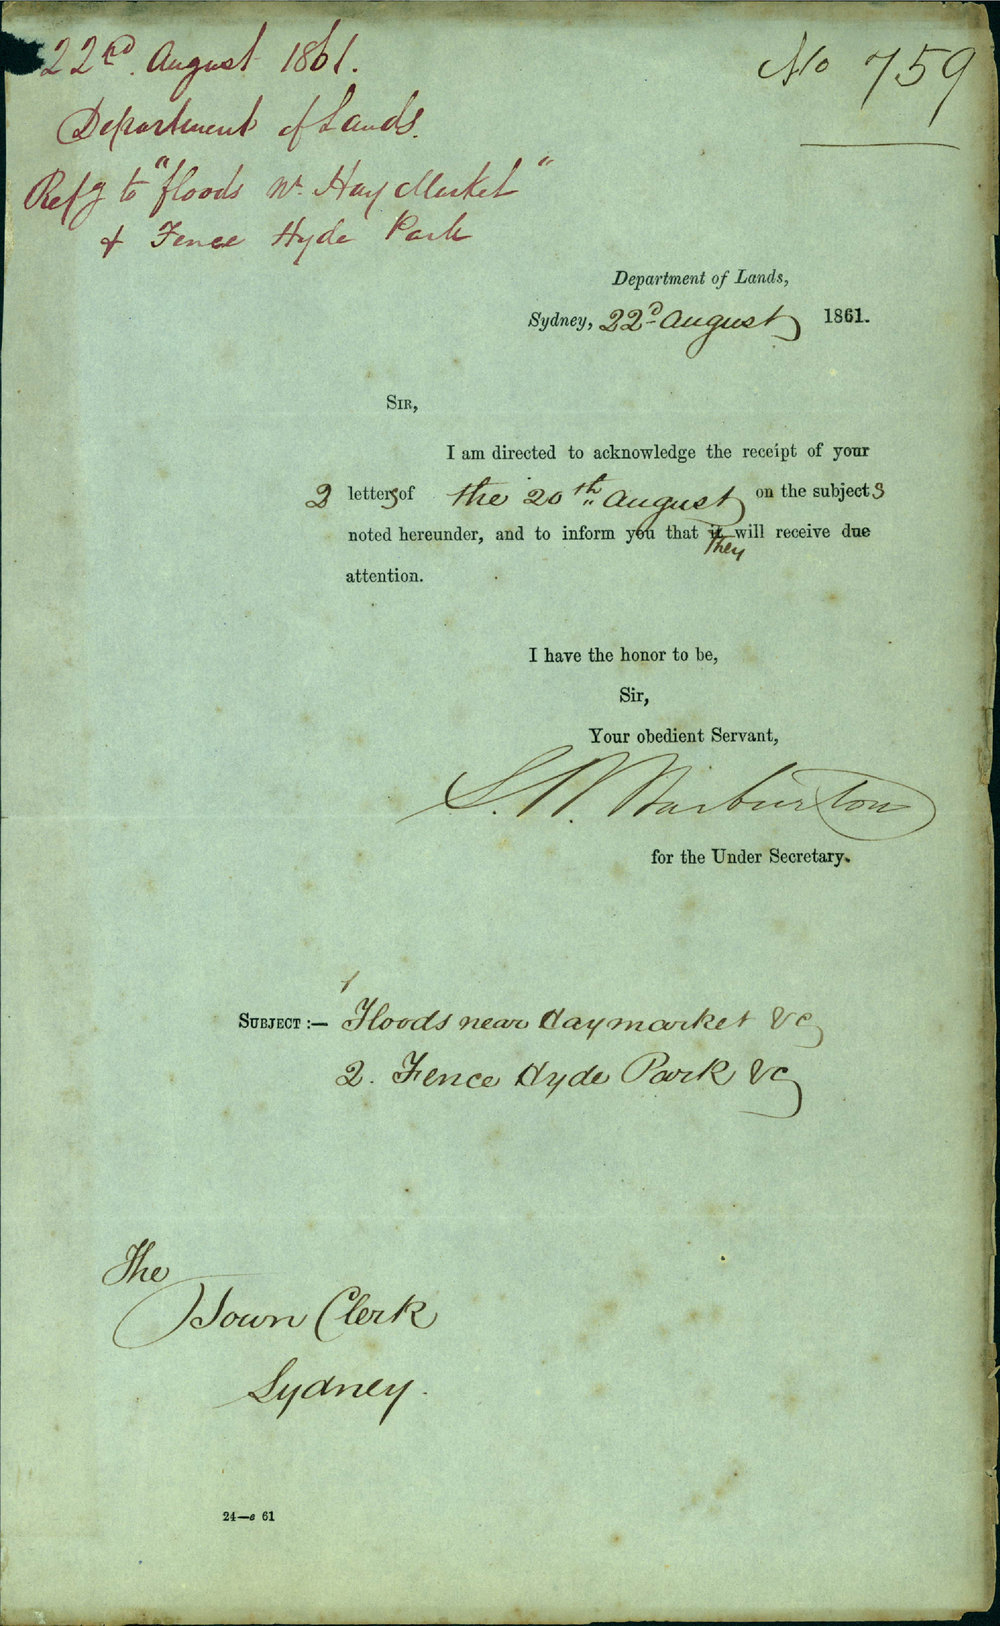 22nd. August 1861.
Department of Lands.
Refg to "floods nr. Hay Market"
& Fence Hyde Park
No 759
Department of Lands,
Sydney, 22d August 1861.
SIR,
I am directed to acknowledge the receipt of your
2 letters of the 20th August on the subjects
noted hereunder, and to inform you that it they will receive due
attention.
I have the honor to be,
Sir,
Your obedient Servant,
S. W. Warburton
for the Under Secretary.
SUBJECT :— 1 Floods near Haymarket &c
2. Fence Hyde Park &c
The
Town Clerk
Sydney.
24—e 61